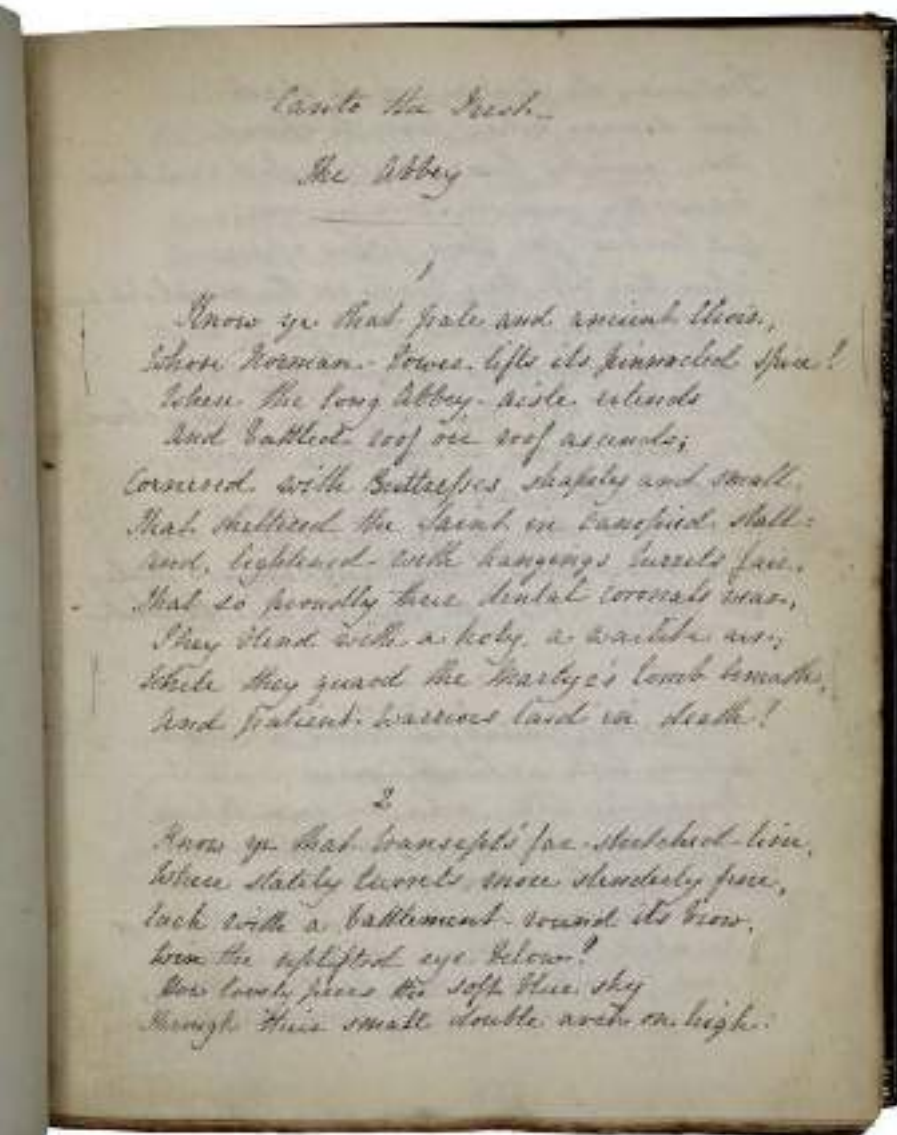 Canto the First.
The Abbey
1
Know ye that pale and ancient Choir,
Whose Norman-tower lifts its pinnacled spire!
Where the long Abbey-aisle extends
And battled roof on roof ascends;
Cornered with Buttresses shapely and small
That sheltered the Saint in canopied stall:
And, lightened with hangings turrets fair,
That so proudly their dental coronals wear,
They blend with a holy, a warlike air;
While they guard the Martyr's tomb beneath,
And patient warriors laid in death!
2
Know ye that transepts' far-stretched-line,
Where stately turrets, more slenderly fine,
Each with a battlement-round its brow,
Win the uplifted eye below?
How lovely peers the soft blue sky
Through their small double arch on high: